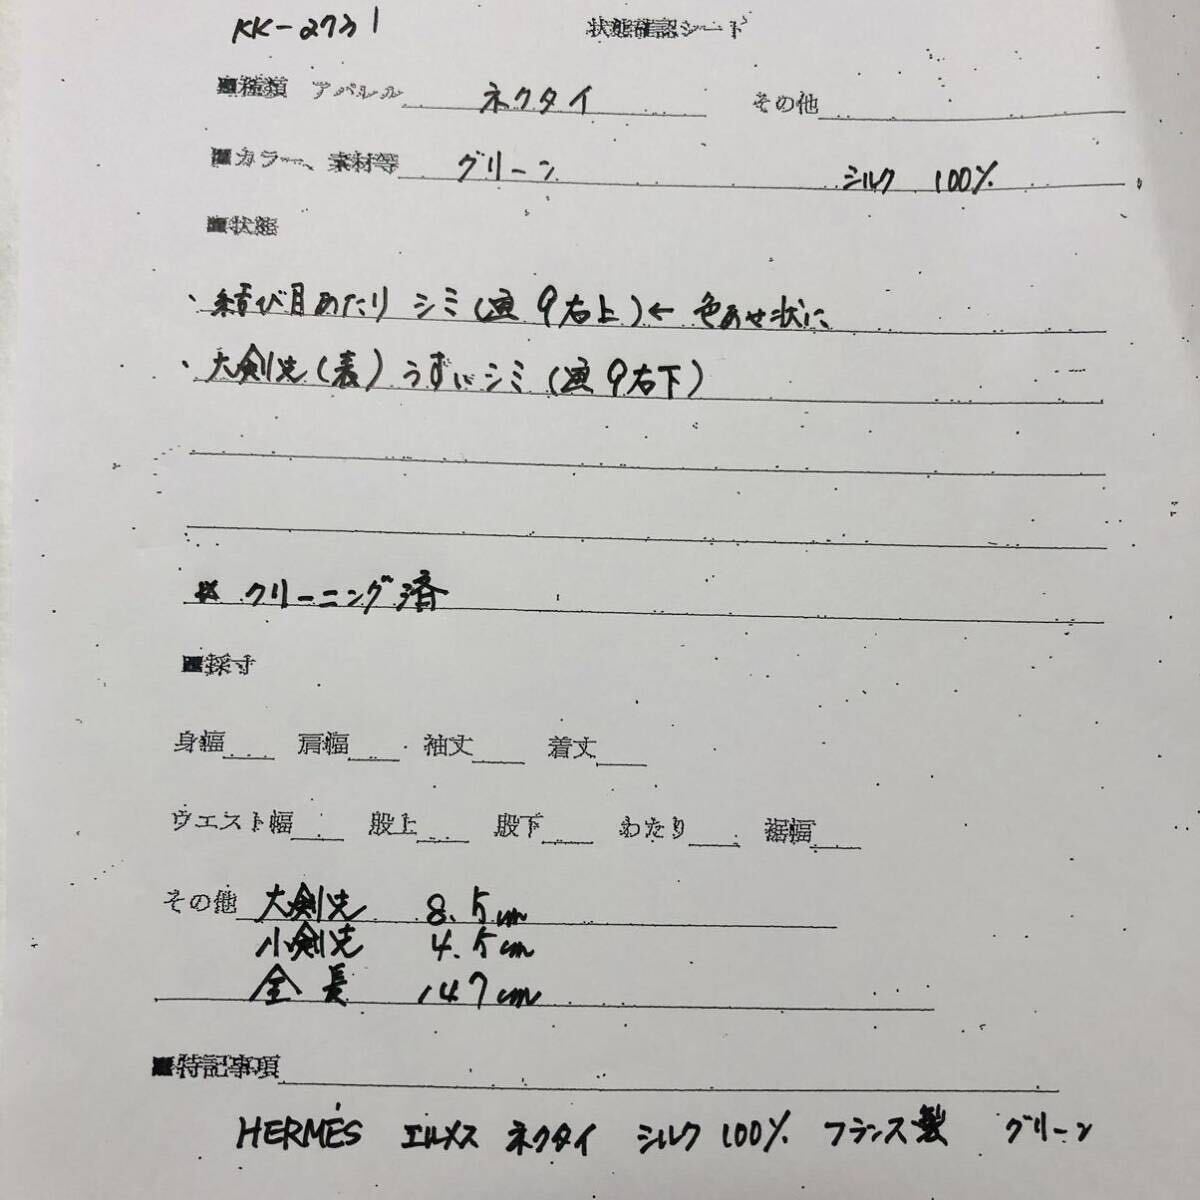 KK-2731
状態確認シート
■種類 アパレル ネクタイ その他
■カラー、素材等 グリーン シルク 100%
■状態
・結び目あたり シミ(画9右上)← 色あせ状に
・大剣先(表)うすいシミ(画9右下)
※ クリーニング済
■採寸
身幅 肩幅 袖丈 着丈
ウエスト幅 股上 股下 わたり 裾幅
その他 大剣先 8.5cm
小剣先 4.5cm
全長 147cm
■特記事項
HERMÈS エルメス ネクタイ シルク 100% フランス製 グリーン